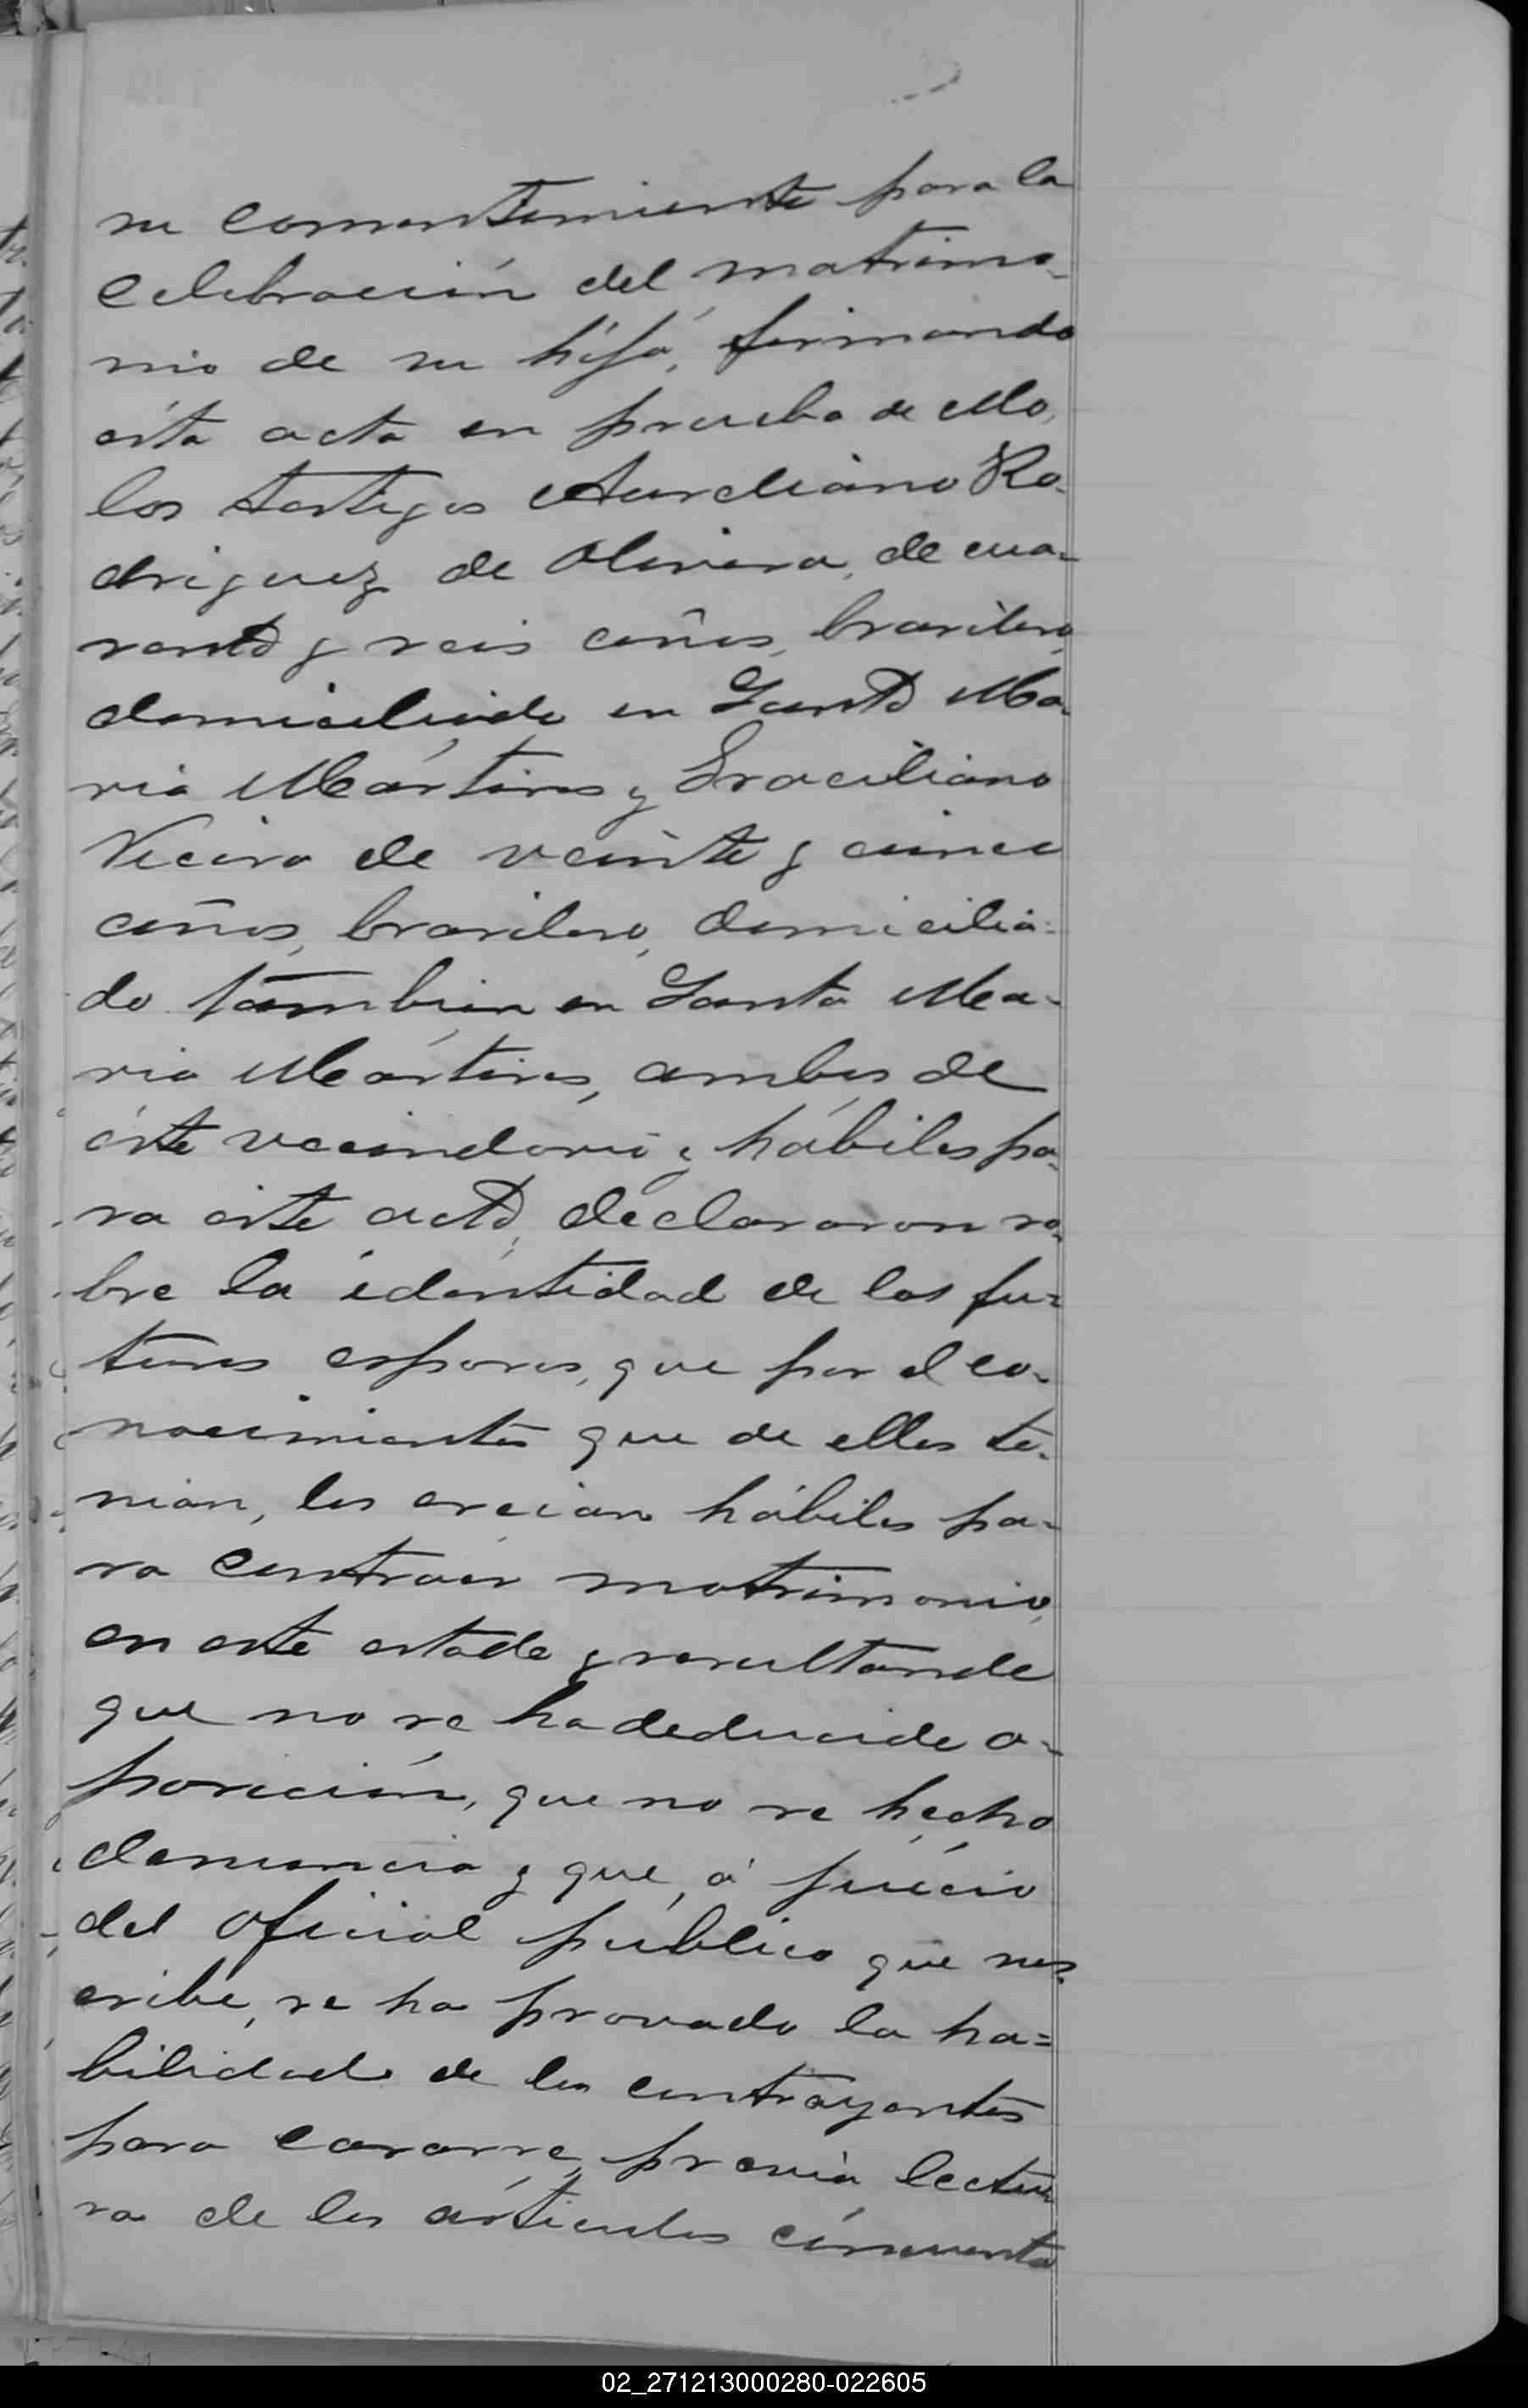 su consentimiento para la
celebración del matrimo-
nio de su hija, firmando
ésta acta en prueba de ello,
los testigos Aureliano Ro-
driguez de Olivera, de cua-
renta y seis años, brasilero,
domiciliado en Santa Ma-
ria Mártires y Graciliano
Vieira de veinte y cinco
años, brasilero, domicilia-
do tambien en Santa Ma-
ria Mártires, ambos de
éste vecindario y hábiles pa-
ra éste acto, declararon so-
bre la identidad de los fu-
turos esposos, que por el co-
nocimiento que de ellos te-
nian, los creian hábiles pa-
ra contraer matrimonio,
en este estado y resultando
que no se ha deducido o-
posición, que no se hecho
denuncia y que, á juicio
del oficial público que sus-
cribe, se ha provado la ha-
bilidad de los contrayentes
para casarse, prévia lectu-
ra de los artículos cincuenta
02_271213000280-022605